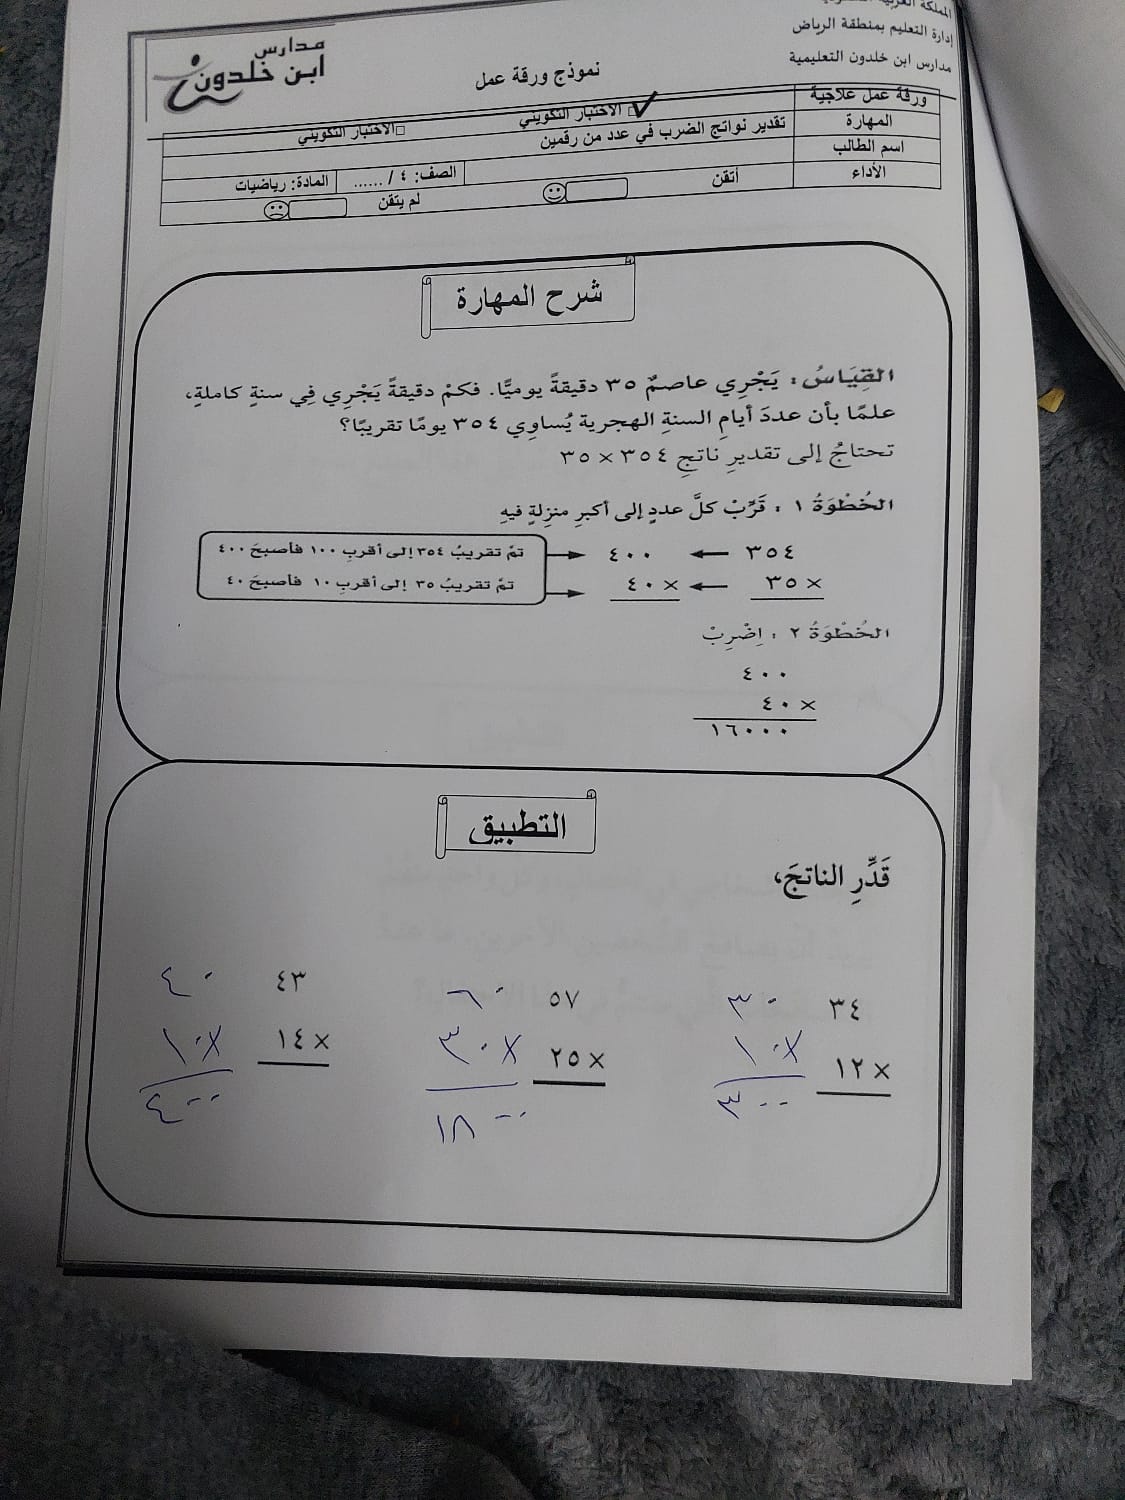 إدارة التعليم بمنطقة الرياض
مدارس ابن خلدون التعليمية
مدارس
ابن خلدون
نموذج ورقة عمل
ورقة عمل علاجية □ الاختبار التكويني □ الاختبار التكويني
المهارة تقدير نواتج الضرب في عدد من رقمين
اسم الطالب الصف: ٤ / ...... المادة: رياضيات
الأداء أتقن لم يتقن
شرح المهارة
القِيَاسُ: يَجْرِي عاصمٌ ٣٥ دقيقةً يوميًّا. فكمْ دقيقةً يَجْرِي فِي سنةٍ كاملةٍ،
علمًا بأن عددَ أيامِ السنةِ الهجرية يُساوِي ٣٥٤ يومًا تقريبًا؟
تحتاجُ إلى تقديرِ ناتجِ ٣٥٤ × ٣٥
الخُطْوَةُ ١ : قَرِّبْ كلَّ عددٍ إلى أكبرِ منزِلةٍ فيهِ
٣٥٤ ← ٤٠٠ تمَّ تقريبُ ٣٥٤ إلى أقربِ ١٠٠ فأصبحَ ٤٠٠
× ٣٥ ← × ٤٠ تمَّ تقريبُ ٣٥ إلى أقربِ ١٠ فأصبحَ ٤٠
الخُطْوَةُ ٢ : اِضْرِبْ
٤٠٠
× ٤٠
١٦٠٠٠
التطبيق
قَدِّرِ الناتجَ،
٣٤ ٣٠ ٥٧ ٦٠ ٤٣ ٤٠
× ١٢ × ١٠ × ٢٥ × ٣٠ × ١٤ × ١٠
٣٠٠ ١٨٠٠ ٤٠٠